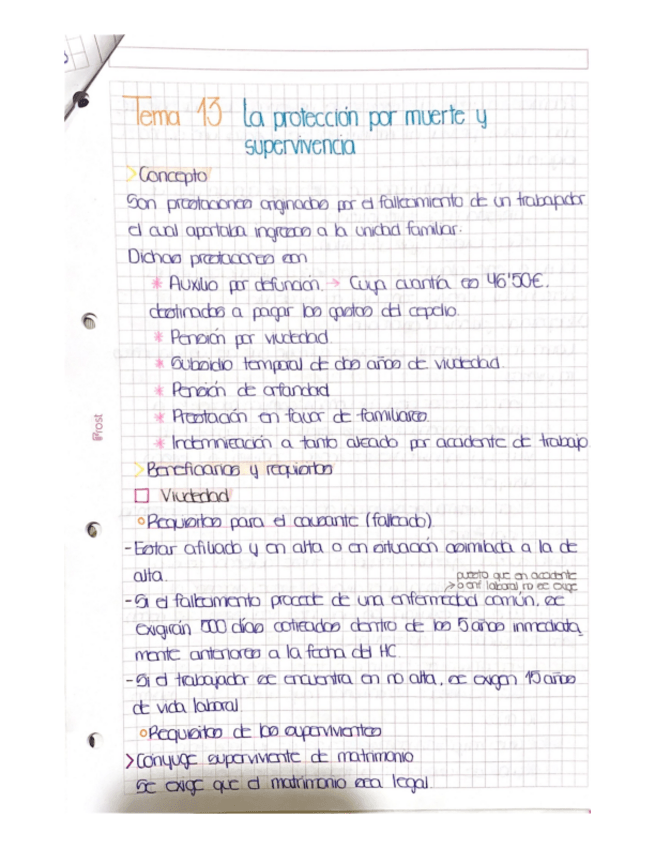 Tema 13 La protección por muerte y
supervivencia
> Concepto
Son prestaciones originadas por el fallecimiento de un trabajador
el cual aportaba ingresos a la unidad familiar.
Dichas prestaciones son
* Auxilio por defunción → Cuya cuantía es 46'50€.
destinados a pagar los gastos del sepelio.
* Pensión por viudedad.
* Subsidio temporal de dos años de viudedad.
* Pensión de orfandad
* Prestación en favor de familiares.
* Indemnización a tanto alzado por accidente de trabajo
> Beneficiarios y requisitos
□ Viudedad
° Requisitos para el causante (fallecido)
- Estar afiliado y en alta o en situación asimilada a la de
alta.
puesto que en accidente
→ o enf laboral no se exige
- Si el fallecimiento procede de una enfermedad común, se
exigirán 500 días cotizados dentro de los 5 años inmediata
mente anteriores a la fecha del HC
- Si el trabajador se encuentra en no alta, se exigen 15 años
de vida laboral.
° Requisitos de los supervivientes
> Cónyuge superviviente de matrimonio
Se exige que el matrimonio sea legal.
iProst